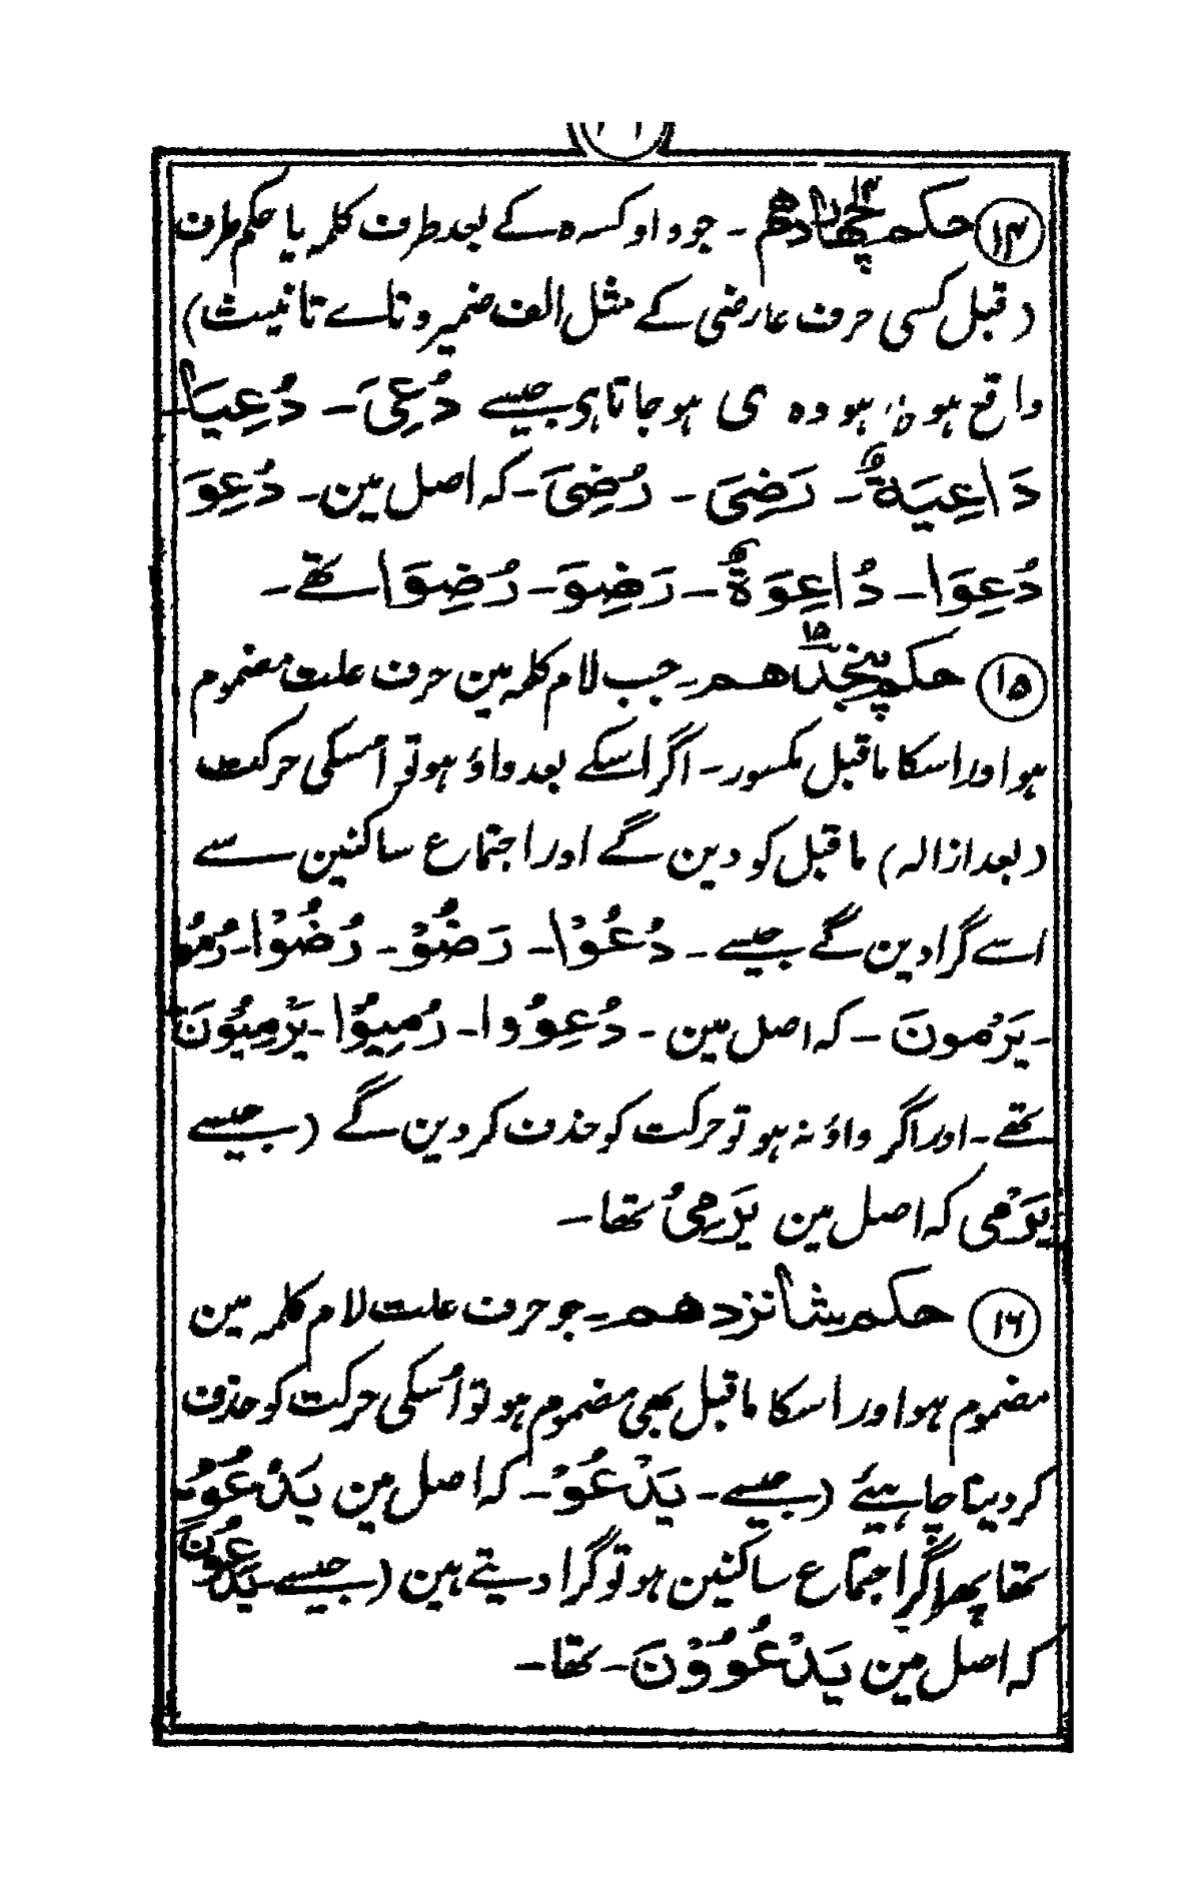 ۱۴ حکم چھاردھم - جو واو کسرہ کے بعد طرف کلمہ یا حکم طرف
(قبل کسی حرف عارضی کے مثل الف ضمیر و تاے تانیث)
واقع ہو ہو وہ ی ہو جاتا ہی جیسے دُعِیَ - دُعِیَا
دَاعِیَةٌ - رَضِیَ - رُضِیَ - کہ اصل مین - دُعِوَ
دُعِوَا - دُاعِوَةٌ - رَضِوَ - رُضِوَا تھے -
۱۵ حکم پنجدھم - جب لام کلمہ مین حرف علت مضموم
ہو اور اسکا ماقبل مکسور - اگر اسکے بعد واؤ ہو تو اُسکی حرکت
(بعد ازالہ) ماقبل کو دین گے اور اجتماع ساکنین سے
اسے گرا دین گے جیسے - دُعُوْا - رَضُوْ - رُضُوْا - رُمُو
- یَرْمونَ - کہ اصل مین - دُعِوُوا - رُمِیُوْا - یَرْمِیُوْنَ
تھے - اور اگر واؤ نہ ہو تو حرکت کو حذف کر دین گے (جیسے
یَرْمِی کہ اصل مین یَرْمِیُ تھا -
۱۶ حکم شانزدھم - جو حرف علت لام کلمہ مین
مضموم ہو اور اسکا ماقبل بھی مضموم ہو تو اُسکی حرکت کو حذف
کر دینا چاہیئے (جیسے - یَدْعُوْ - کہ اصل مین یَدْعُوُ
تھا پھر اگر اجتماع ساکنین ہو تو گرا دیتے ہین (جیسے یَدْعُوْنَ
کہ اصل مین یَدْعُوُوْنَ - تھا -